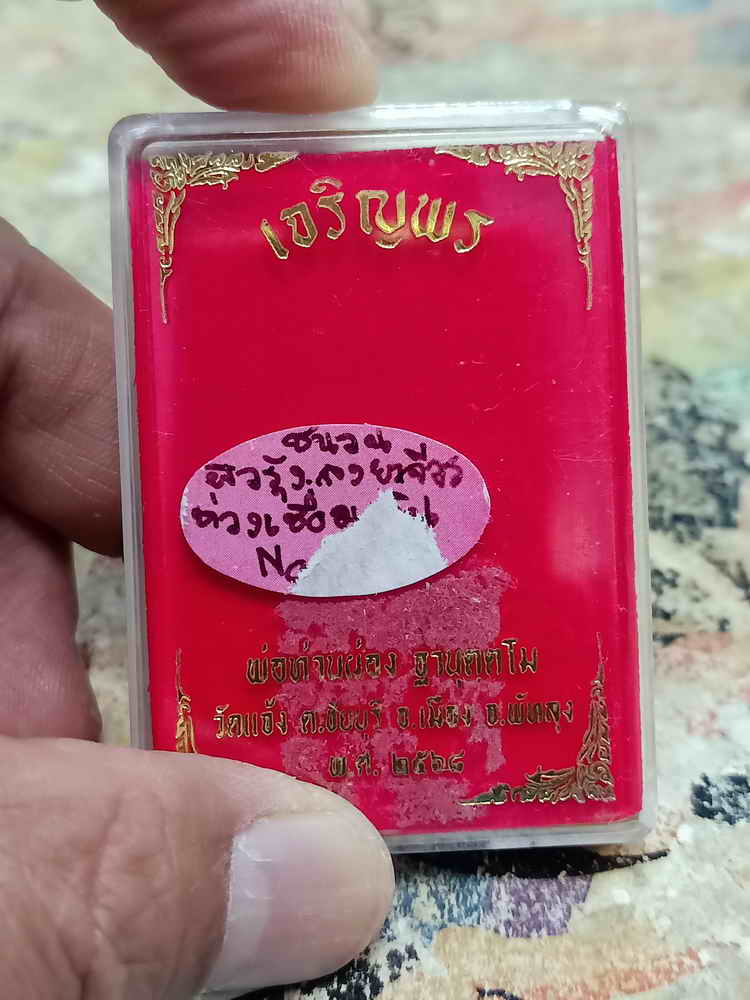 เจริญพร
ชนวน
ผิวรุ้ง.
ห่วงเชื่อม
No
พ่อท่านผ่อง ฐานุตตโม
วัดแจ้ง ต.ชัยบุรี อ.เมือง จ.พัทลุง
พ.ศ. ๒๕๖๘